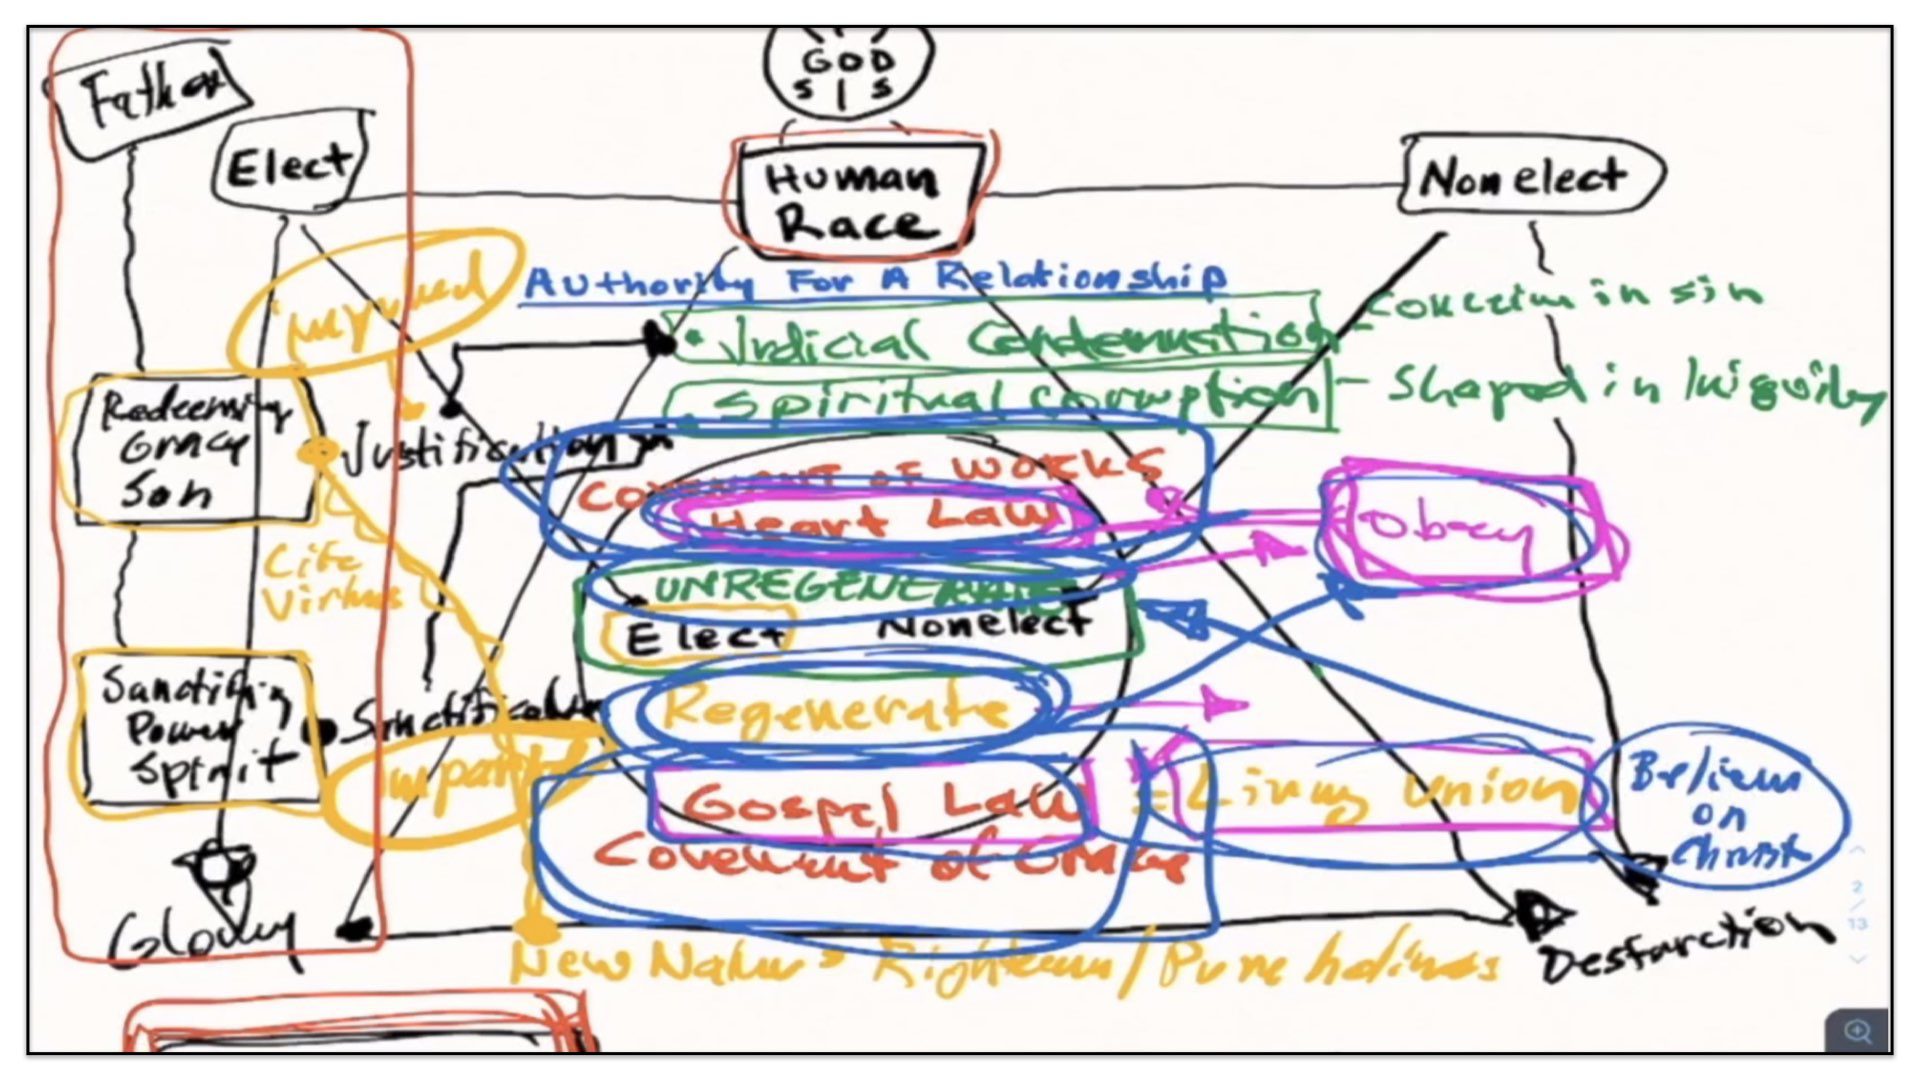 GOD
S I S
Father
Elect
Human
Race
Nonelect
Authority For A Relationship
• Judicial Condemnation
- in sin
• Spiritual corruption
- Shaped in Iniquity
Redeeming
Grace
Son
Justification
Covenant of Works
Heart Law
Obey
Life
Virtues
UNREGENERATE
Elect Nonelect
Sanctifying
Power
Spirit
Sanctification
Regenerate
Gospel Law
= Living Union
Believe
on
Christ
Covenant of Grace
Glory
New Nature = / Pure holiness
Desfarction
2
/
13